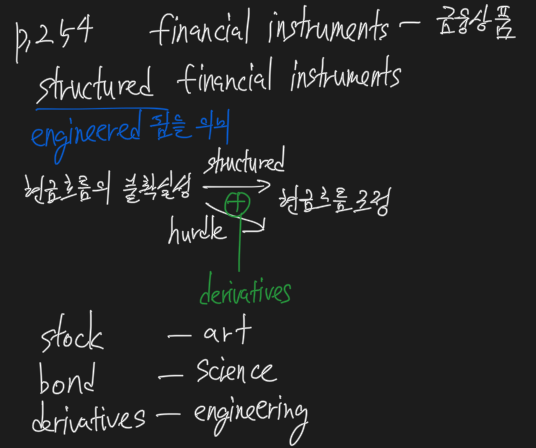 p,254 financial instruments - 금융상품
structured financial instruments
engineered 됨을 의미
structured
현금흐름의 불확실성 → 현금흐름 조정
hurdle
derivatives
stock - art
bond - science
derivatives - engineering